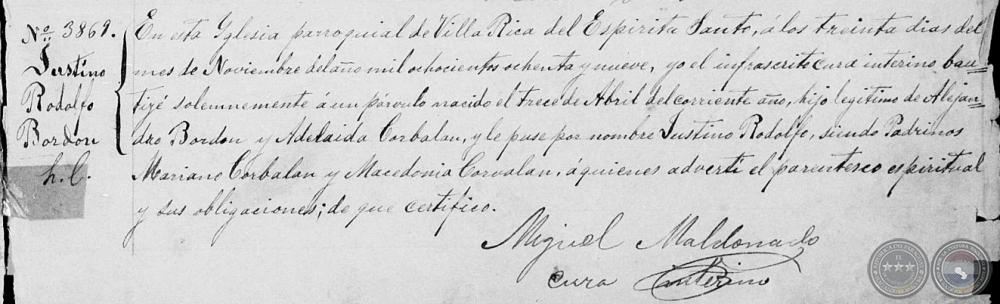 Nº 3869.
Justino
Rodolfo
Bordon
h. l.
En esta Yglesia parroquial de Villa Rica del Espiritu Santo, á los treinta dias del
mes de Noviembre del año mil ochocientos ochenta y nueve, yo el infrascrito cura interino bau-
tizé solemnemente á un párvulo nacido el trece de Abril del corriente año, hijo legitimo de Alejan-
dro Bordon y Adelaida Corbalan, y le puse por nombre Justino Rodolfo, siendo Padrinos
Mariano Corbalan y Macedonia Corvalan, á quienes advertí el parentesco espiritual
y sus obligaciones; de que certifico.
Miguel Maldonado
cura interino